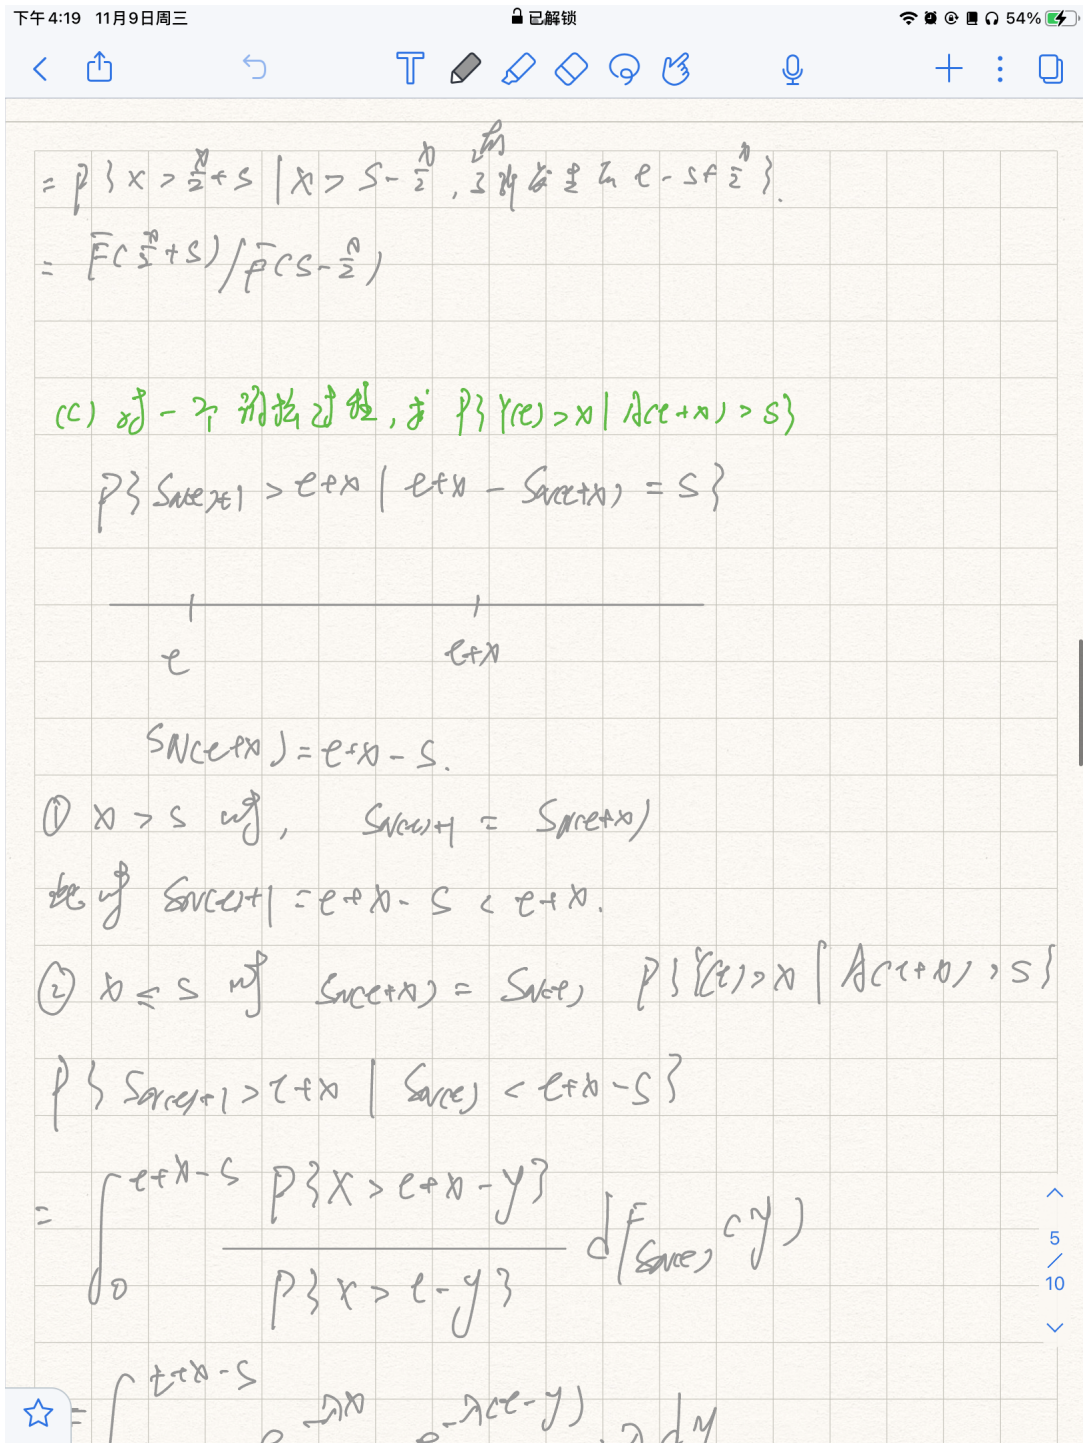 下午4:19 11月9日周三
已解锁
54%
= P{X > x/2 + s | X > s - x/2, t - s + x/2}.
= F̄(x/2 + s) / F̄(s - x/2)
(c) 对一个泊松过程, 求 P{Y(t) > x | A(t+x) > s}
P{S_{N(t)+1} > t+x | t+x - S_{N(t+x)} = s}
t
t+x
S_{N(t+x)} = t+x - s.
① x > s 时, S_{N(t)+1} = S_{N(t+x)}
此时 S_{N(t)+1} = t+x - s < t+x.
② x ≤ s 时 S_{N(t+x)} = S_{N(t)} P{Y(t) > x | A(t+x) > s}
P{S_{N(t)+1} > t+x | S_{N(t)} < t+x - s}
= ∫_0^{t+x-s} P{X > t+x-y} / P{X > t-y} dF_{S_{N(t)}}(y)
5
/
10
= ∫^{t+x-s} e^{-λx} e^{-λ(t-y)} · λ dy